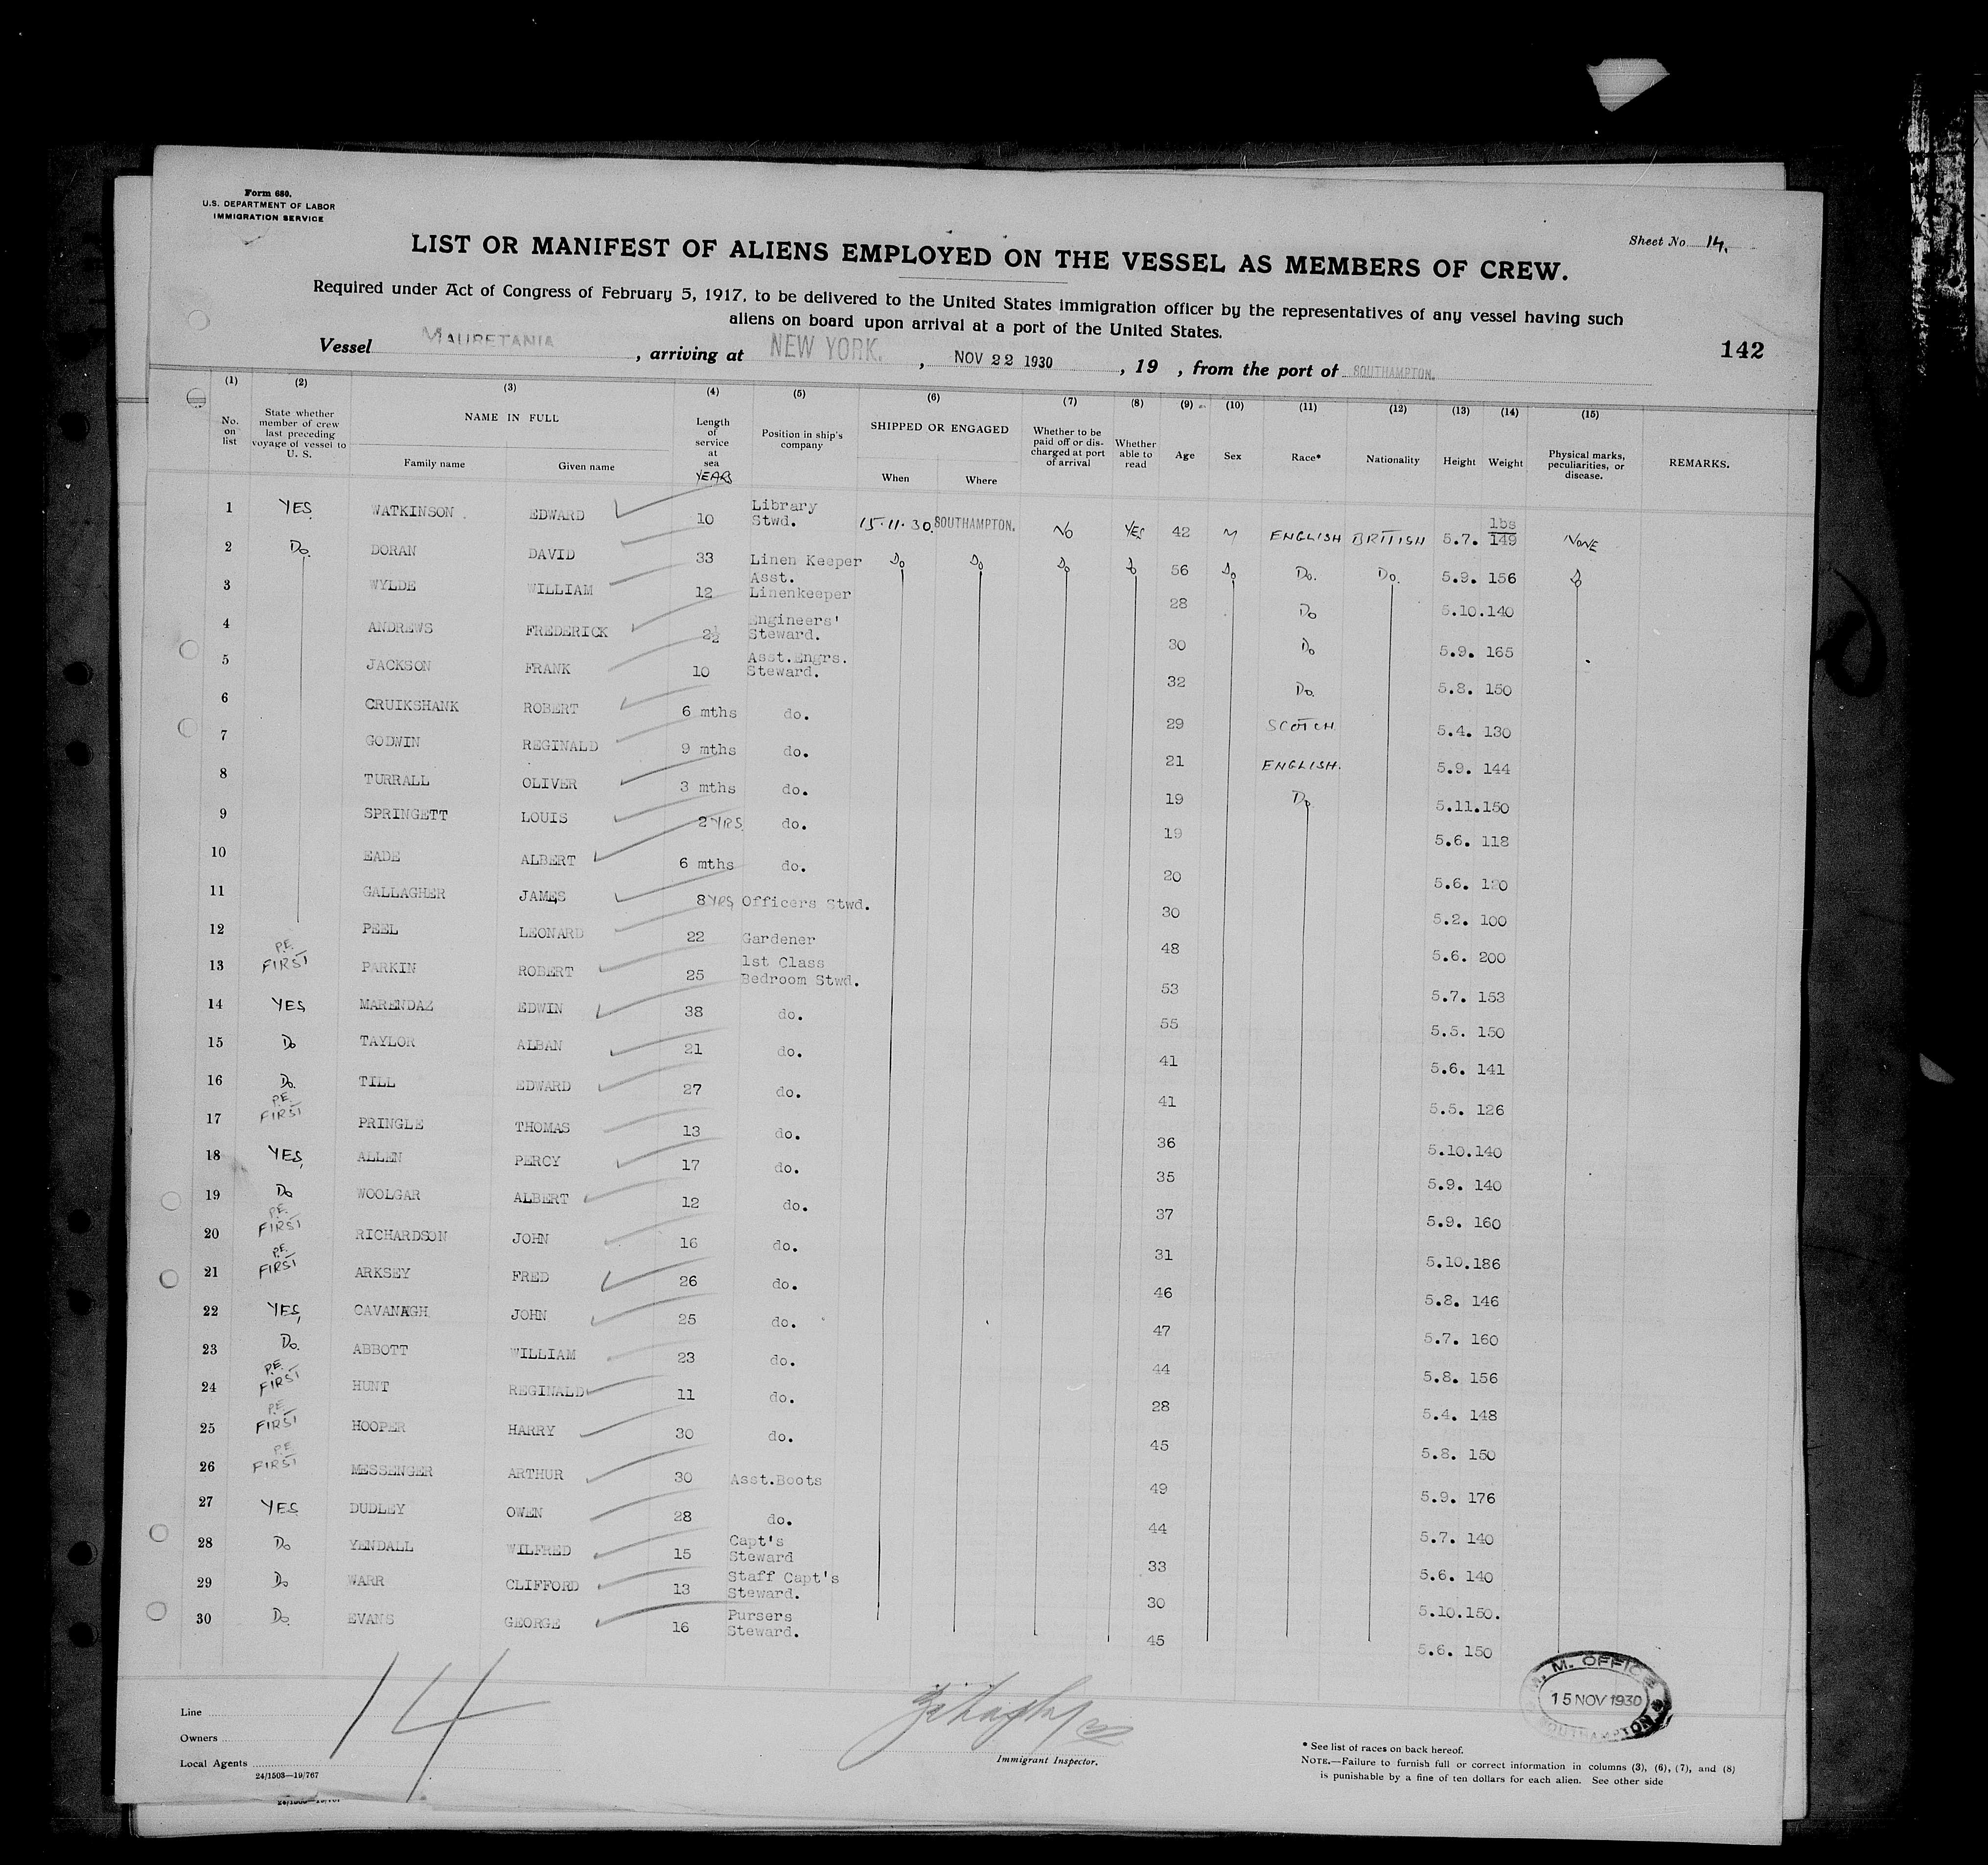 Form 680.
U.S. DEPARTMENT OF LABOR
IMMIGRATION SERVICE
Sheet No. 14.
LIST OR MANIFEST OF ALIENS EMPLOYED ON THE VESSEL AS MEMBERS OF CREW.
Required under Act of Congress of February 5, 1917, to be delivered to the United States immigration officer by the representatives of any vessel having such
aliens on board upon arrival at a port of the United States.
142
Vessel MAURETANIA, arriving at NEW YORK., NOV 22 1930, 19 , from the port of SOUTHAMPTON.
(1) (2) (3) (4) (5) (6) (7) (8) (9) (10) (11) (12) (13) (14) (15)
No. on list
State whether member of crew last preceding voyage of vessel to U. S.
NAME IN FULL
Family name Given name
Length of service at sea
YEARS
Position in ship's company
SHIPPED OR ENGAGED
When Where
Whether to be paid off or discharged at port of arrival
Whether able to read
Age
Sex
Race*
Nationality
Height
Weight
Physical marks, peculiarities, or disease.
REMARKS.
1 YES WATKINSON EDWARD 10 Library Stwd. 15.11.30. SOUTHAMPTON. NO YES 42 M ENGLISH BRITISH 5.7. lbs 149 NONE
2 Do. DORAN DAVID 33 Linen Keeper Do Do Do Do 56 Do Do. Do. 5.9. 156 Do
3 WYLDE WILLIAM 12 Asst. Linenkeeper 28 Do 5.10. 140
4 ANDREWS FREDERICK 2½ Engineers' Steward. 30 Do 5.9. 165
5 JACKSON FRANK 10 Asst.Engrs. Steward. 32 Do. 5.8. 150
6 CRUIKSHANK ROBERT 6 mths do. 29 SCOTCH 5.4. 130
7 GODWIN REGINALD 9 mths do. 21 ENGLISH. 5.9. 144
8 TURRALL OLIVER 3 mths do. 19 Do 5.11. 150
9 SPRINGETT LOUIS 2 YRS do. 19 5.6. 118
10 EADE ALBERT 6 mths do. 20 5.6. 120
11 GALLAGHER JAMES 8 YRS Officers Stwd. 30 5.2. 100
12 PEEL LEONARD 22 Gardener 48 5.6. 200
13 P.E. FIRST PARKIN ROBERT 25 1st Class Bedroom Stwd. 53 5.7. 153
14 YES MARENDAZ EDWIN 38 do. 55 5.5. 150
15 Do TAYLOR ALBAN 21 do. 41 5.6. 141
16 Do. TILL EDWARD 27 do. 41 5.5. 126
17 P.E. FIRST PRINGLE THOMAS 13 do. 36 5.10. 140
18 YES ALLEN PERCY 17 do. 35 5.9. 140
19 Do WOOLGAR ALBERT 12 do. 37 5.9. 160
20 P.E. FIRST RICHARDSON JOHN 16 do. 31 5.10. 186
21 P.E. FIRST ARKSEY FRED 26 do. 46 5.8. 146
22 YES CAVANAGH JOHN 25 do. 47 5.7. 160
23 Do. ABBOTT WILLIAM 23 do. 44 5.8. 156
24 P.E. FIRST HUNT REGINALD 11 do. 28 5.4. 148
25 P.E. FIRST HOOPER HARRY 30 do. 45 5.8. 150
26 P.E. FIRST MESSENGER ARTHUR 30 Asst.Boots 49 5.9. 176
27 YES DUDLEY OWEN 28 do. 44 5.7. 140
28 Do YENDALL WILFRED 15 Capt's Steward 33 5.6. 140
29 Do WARR CLIFFORD 13 Staff Capt's Steward. 30 5.10. 150.
30 Do EVANS GEORGE 16 Pursers Steward. 45 5.6. 150
14
M. M. OFFICE
15 NOV 1930
SOUTHAMPTON
Line
Owners
Local Agents
24/1503—19/767
Immigrant Inspector.
* See list of races on back hereof.
NOTE.—Failure to furnish full or correct information in columns (3), (6), (7), and (8)
is punishable by a fine of ten dollars for each alien. See other side